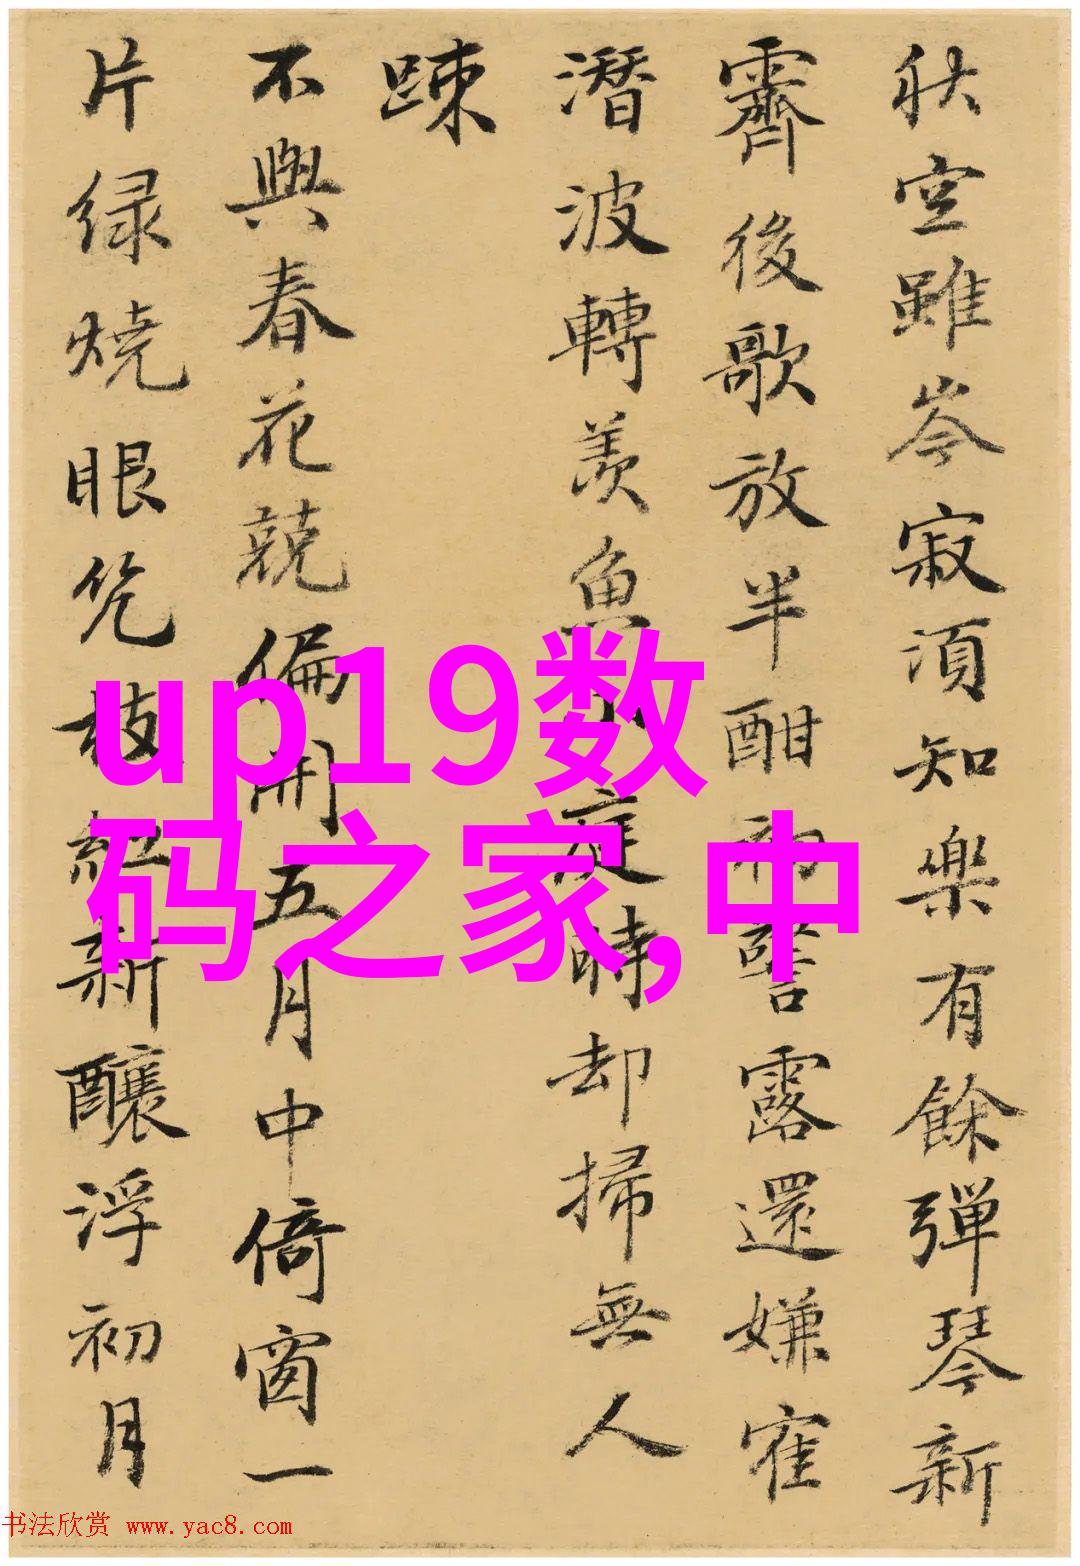 秋空雖岑寂須知樂有餘彈琴新
霽後歌放半酣初譬露還嫌寉
潛波轉羨魚庭時却掃無人
踈
不與春花競偏開五月中倚窗一
片緑燒眼幾枝紅新釀浮初月
up19数
码之家,中
书法欣赏 www.yac8.com